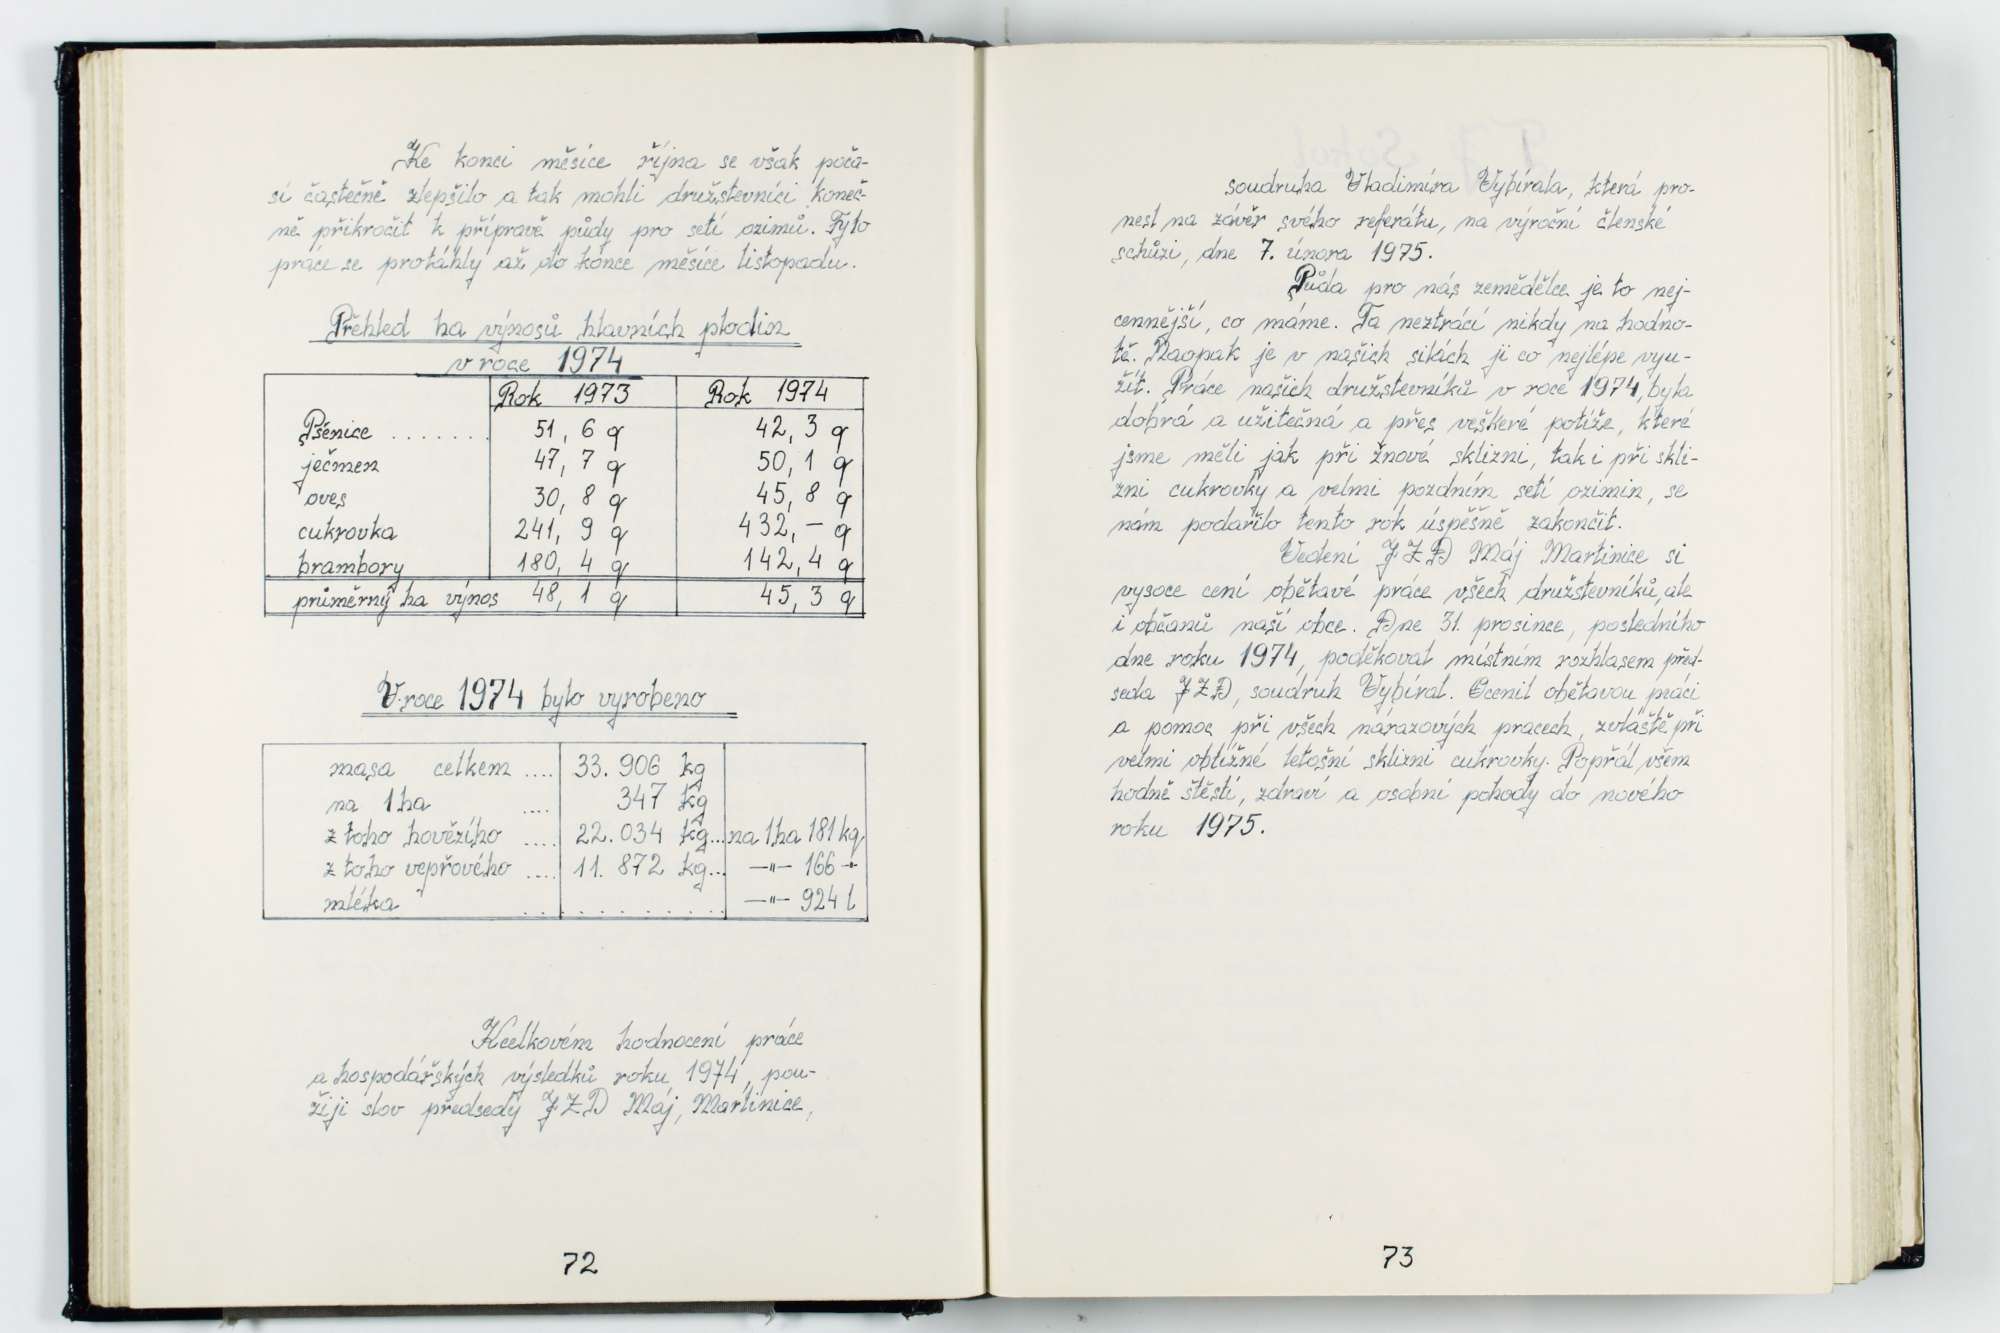 Ke konci měsíce října se však poča-
sí částečně zlepšilo a tak mohli družstevníci koneč-
ně přikročit k přípravě půdy pro setí ozimů. Tyto
práce se protáhly až do konce měsíce listopadu.
Přehled ha výnosů hlavních plodin
v roce 1974
Rok 1973 Rok 1974
Pšenice ....... 51, 6 q 42, 3 q
ječmen 47, 7 q 50, 1 q
oves 30, 8 q 45, 8 q
cukrovka 241, 9 q 432, – q
brambory 180, 4 q 142, 4 q
průměrný ha výnos 48, 1 q 45, 3 q
V roce 1974 bylo vyrobeno
masa celkem .... 33. 906 kg
na 1 ha .... 347 kg
z toho hovězího .... 22. 034 kg... na 1 ha 181 kg
z toho vepřového .... 11. 872 kg... —"— 166 -"-
mléka .. . . . . . . . . —"— 924 l
K celkovém hodnocení práce
a hospodářských výsledků roku 1974, pou-
žiji slov předsedy JZD Máj, Martinice,
72
soudruha Vladimíra Vybírala, která pro-
nesl na závěr svého referátu, na výroční členské
schůzi, dne 7. února 1975.
Půda pro nás zemědělce je to nej-
cennější, co máme. Ta neztrácí nikdy na hodno-
tě. Naopak je v našich silách ji co nejlépe vyu-
žít. Práce našich družstevníků v roce 1974, byla
dobrá a užitečná a přes veškeré potíže, které
jsme měli jak při žňové sklizni, tak i při skli-
zni cukrovky a velmi pozdním setí ozimin, se
nám podařilo tento rok úspěšně zakončit.
Vedení JZD Máj Martinice si
vysoce cení obětavé práce všech družstevníků, ale
i občanů naší obce. Dne 31. prosince, posledního
dne roku 1974, poděkoval místním rozhlasem před-
seda JZD, soudruh Vybíral. Ocenil obětavou práci
a pomoc při všech nárazových pracech, zvláště při
velmi obtížné letošní sklizni cukrovky. Popřál všem
hodně štěstí, zdraví a osobní pohody do nového
roku 1975.
73